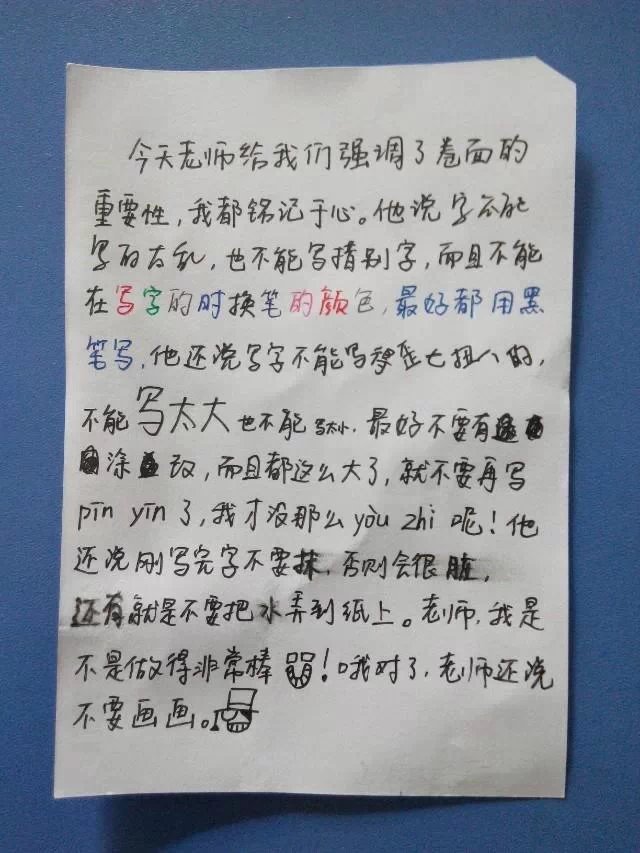 今天老师给我们强调了卷面的
重要性,我都铭记于心。他说字不能
写的太乱,也不能写措别字,而且不能
在写字的时换笔的颜色,最好都用黑
笔写,他还说写字不能写歪七扭八的,
不能写太大也不能写太小,最好不要有
涂改,而且都这么大了,就不要再写
pīn yīn了,我才没那么yòu zhì呢!他
还说刚写完字不要抹,否则会很脏,
还有就是不要把水弄到纸上。老师,我是
不是做得非常棒!哦对了,老师还说
不要画画。